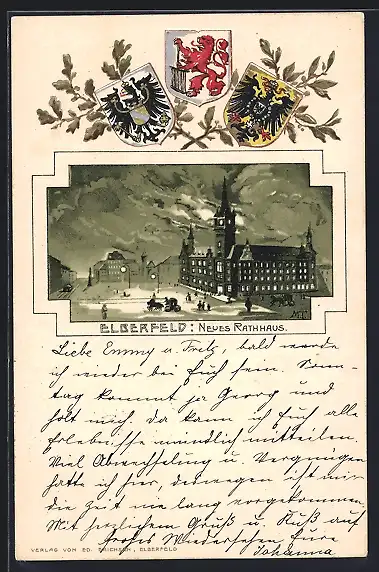 ELBERFELD: NEUES RATHHAUS.
Liebe Emmy u. Fritz, bald werde
ich wieder bei Euch sein. Sonn-
tag kommt ja Georg und
holt mich. da kann ich Euch alle
Erlebnisse mündlich mitteilen.
Viel Abwechselung u. Vergnügen
hatte ich hier, deswegen ist mir
die Zeit nie lang vorgekommen.
Mit herzlichem Gruß u. Kuß auf
frohes Wiedersehen Eure
Johanna
VERLAG VON ED. ERICHSEN, ELBERFELD